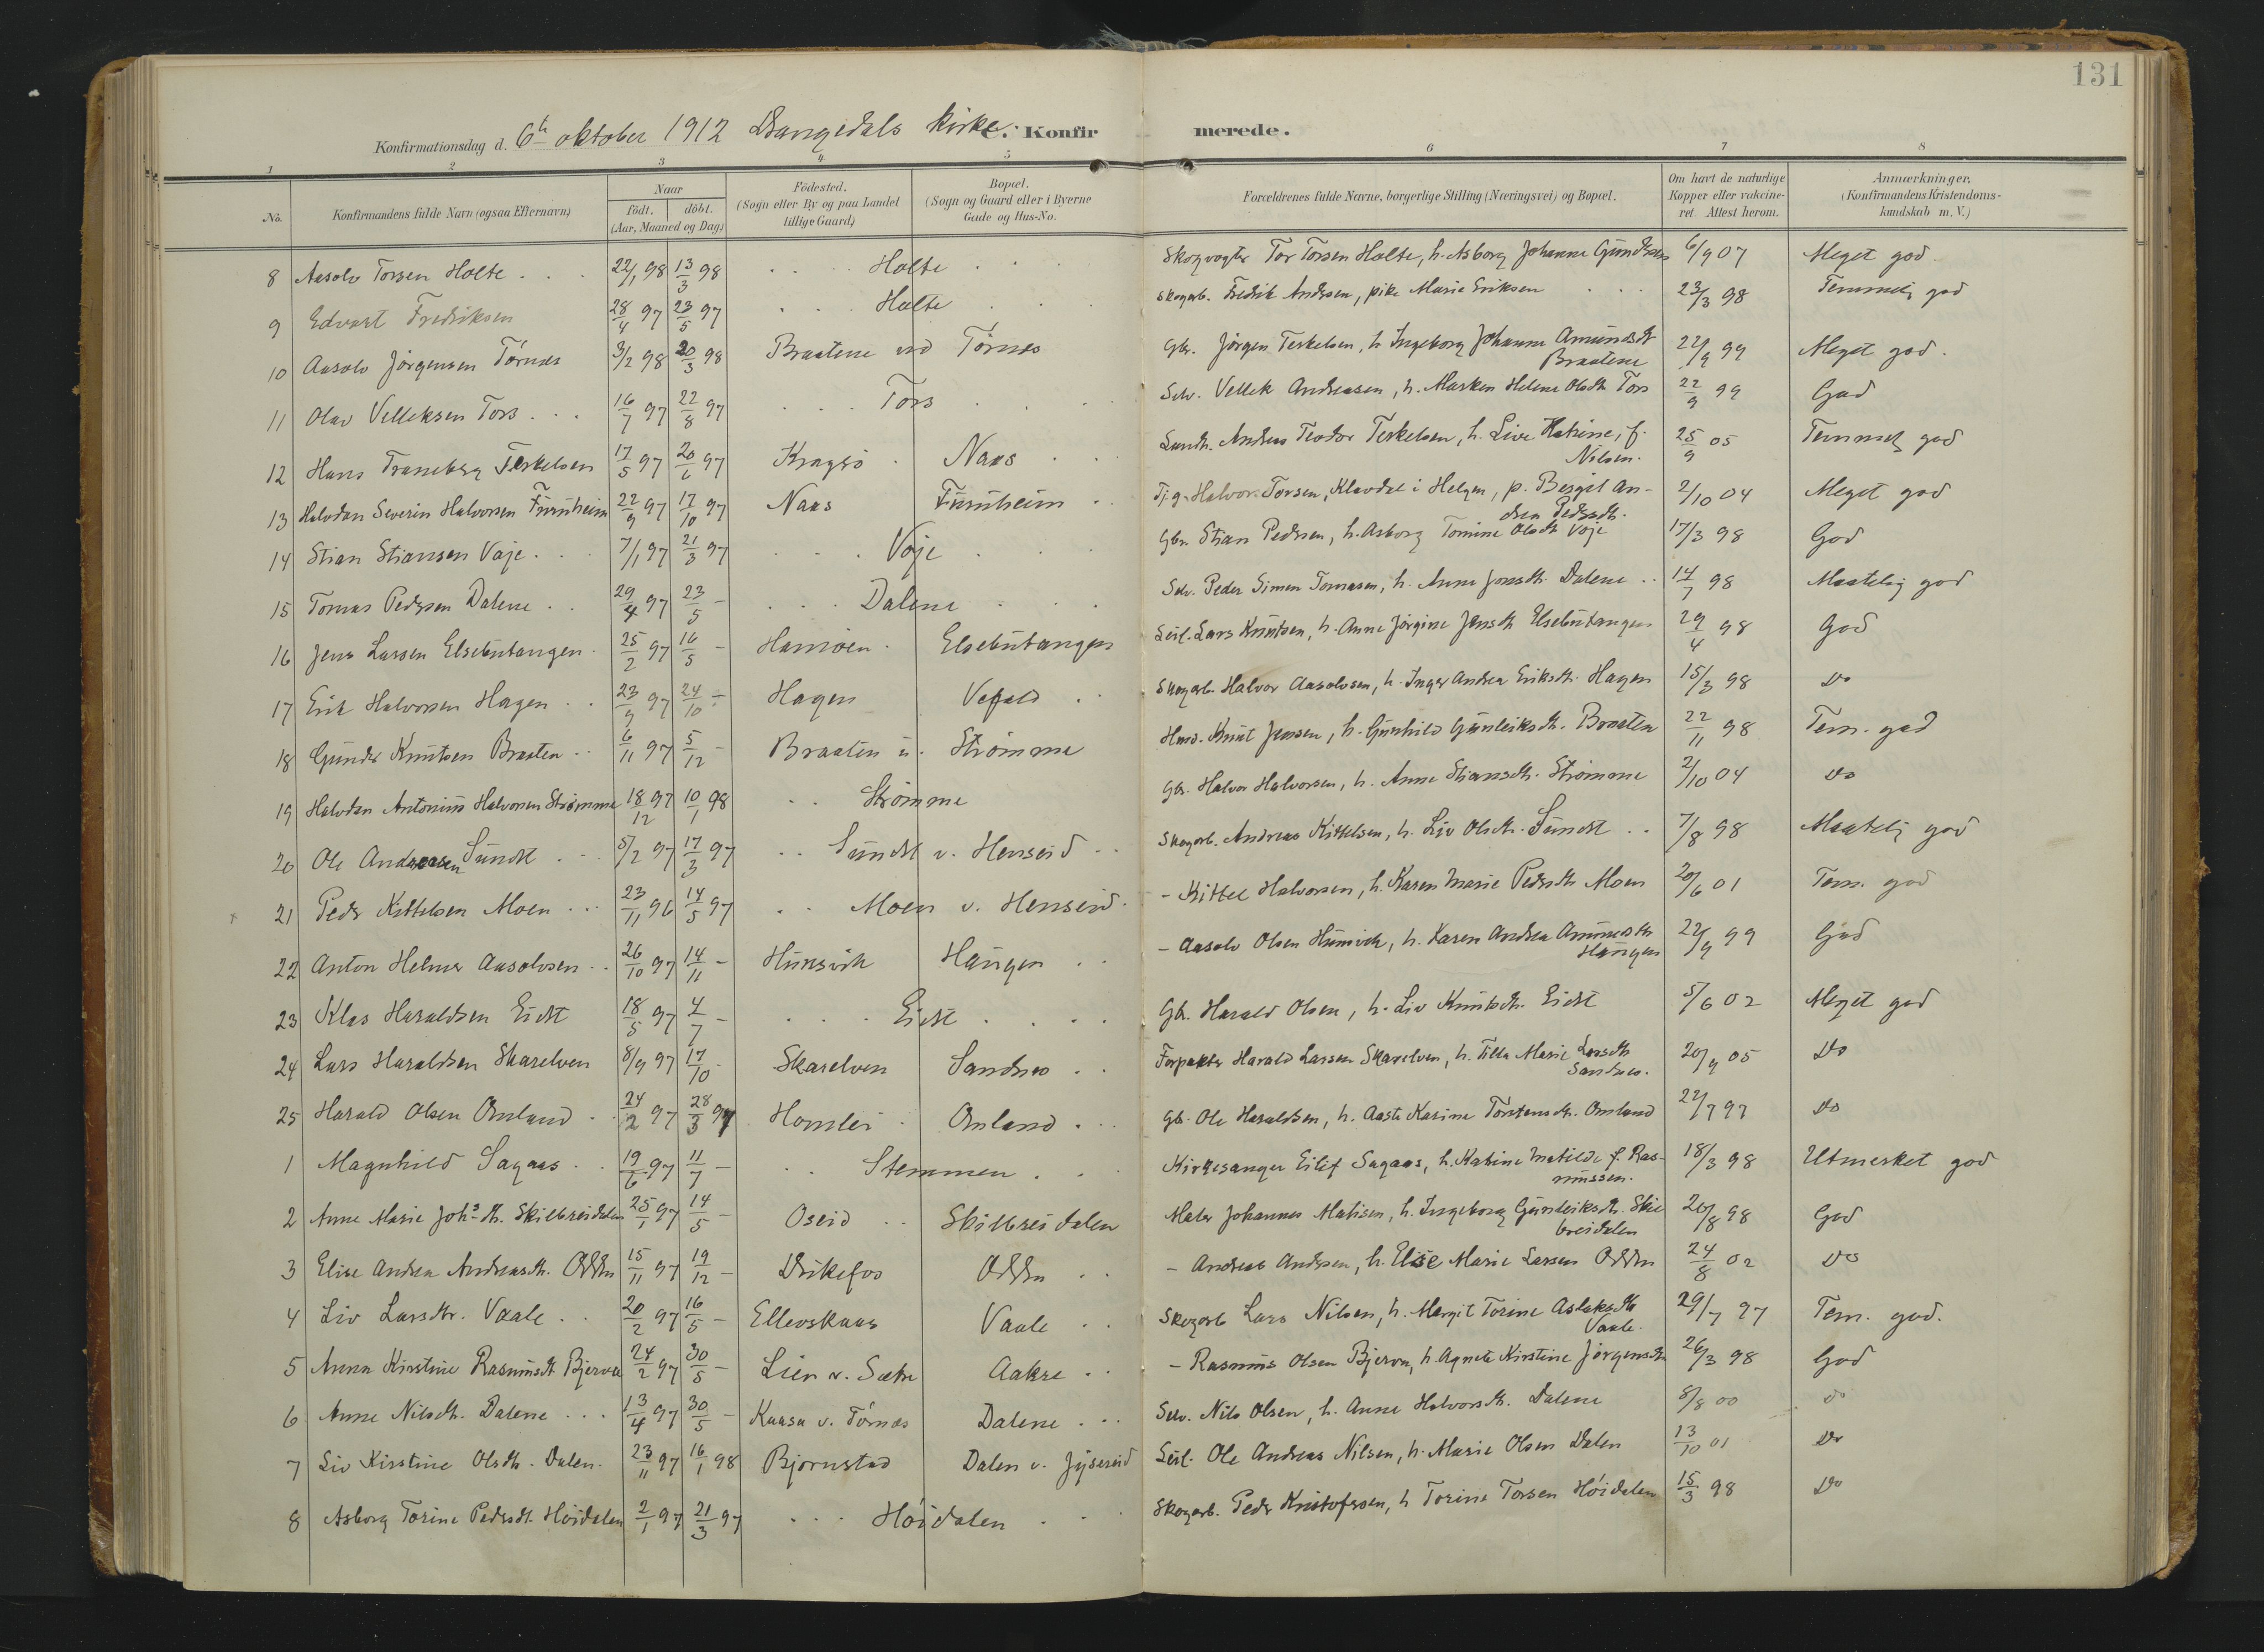 131
Konfirmationsdag d. 6te oktober 1912 Drangedals kirke. C. Konfirmerede.
1 2 3 4 5 6 7 8
No. Konfirmandens fulde Navn (ogsaa Efternavn) Naar født. døbt. (Aar, Maaned og Dag) Fødested. (Sogn eller By og paa Landet tillige Gaard) Bopæl. (Sogn og Gaard eller i Byerne Gade og Hus-No. Forældrenes fulde Navne, borgerlige Stilling (Næringsvei) og Bopæl. Om havt de naturlige Kopper eller vakcineret. Attest herom. Anmærkninger. (Konfirmandens Kristendomskundskab m. V.)
8 Aasolv Torsen Holte . . . 22/1 98 13/3 98 . . . Holte . . . Skogvogter Tor Torsen Holte, h. Asborg Johanne Gundersen 6/9 07 Meget god.
9 Edvart Fredriksen 28/4 97 23/5 97 . . . Holte . . . Skogarb. Fredrik Andersen, pike Marie Eriksen . . . 23/3 98 Temmelig god
10 Aasolv Jørgensen Tørnes 3/2 98 20/3 98 Braatene und Tørnes Gbr. Jørgen Terkelsen, h Ingeborg Johanne Amundsdt
Braatene 22/9 99 Meget god.
11 Olav Velleksen Tors . . . 16/7 97 22/8 97 . . . Tors . . . Selv. Vellek Andreasen, h. Marken Helene Olsdt Tors 22/9 99 God
12 Hans Traneberg Terkelsen 17/5 97 20/6 97 Kragerø . Naas . . . Landh. Andreas Teodor Terkelsen, h. Live Katrine, f.
Nilsen. 25/9 05 Temmelig god
13 Halvdan Severin Halvorsen Furuheim 22/9 97 17/10 97 Naas Furuheim . . Tj.g. Halvor Torsen, Klovdal i Helgen, p. Bergit An-
drea Pedersdt. 2/10 04 Meget god
14 Stian Stiansen Vøje . . . 7/1 97 21/3 97 . . . Vøje . . . Gbr. Stian Pedersen, h. Asborg Tomine Olsdt Vøje 17/3 98 God
15 Tomas Pedersen Dalene . . 29/4 97 23/5 - . . . Dalene . . . Selv. Peder Simen Tomasen, h. Anne Jonsdt. Dalene . . 14/7 98 Maatelig god
16 Jens Larsen Elsebutangen . 25/2 97 16/5 - Hamoen . Elsebutangen Leil. Lars Knutsen, h. Anne Jørgine Jensdt Elsebutangen 29/4 98 God
17 Erik Halvorsen Hagen . . 23/9 97 24/10 - Hagen Vefald . . Skogarb. Halvor Aasolvsen, h. Inger Andrea Eriksdt. Hagen 15/3 98 Do
18 Gunder Knutsen Braaten . . 6/11 97 5/12 - Braaten u. Strømme Husm. Knut Jensen, h. Gunhild Gunleiksdt. Braaten 22/11 98 Tem. god
19 Halvdan Antonius Halvorsen Strømme 18/12 97 10/1 98 . . Strømme Gbr. Halvor Halvorsen, h. Anne Stiansdt. Strømme 2/10 04 do
20 Ole Andreasen Sundet . . 5/2 97 17/3 97 . . Sundet v. Henseid . . Skogarb. Andreas Kittelsen, h. Liv Olsdt. Sundet . . 7/8 98 Maatelig god
21 Peder Kittelsen Moen . . . 23/11 96 14/5 97 . . Moen v. Henseid . - Kittel Halvorsen, h. Karen Marie Pedersdt Moen 20/6 01 Tem. god
22 Anton Helmer Aasolvsen . . 26/10 97 14/11 - Hunsvik Haugen . . - Aasolv Olsen Hunsvik, h. Karen Andrea Amundsdt
Haugen 22/9 99 God
23 Klas Haraldsen Eidet 18/5 97 4/7 - . . . Eidet . . . . Gb. Harald Olsen, h. Liv Knutsdt. Eidet 5/6 02 Meget god
24 Lars Haraldsen Skarelven 8/9 97 17/10 - Skarelven Sandnes . . Forpakter Harald Larsen Skarelven, h. Tilla Marie Larsdt
Sandnes. 20/9 05 Do
25 Harald Olsen Omland . . 24/2 97 28/3 97 Homlei . Omland . . . Gb. Ole Haraldsen, h. Aaste Karine Torstensdt. Omland 22/7 97 do
1 Magnhild Sagaas . . 19/6 97 11/7 - . . Stemmen . . . Kirkesanger Eilef Sagaas, h. Katine Matilde f. Ras-
mussen. 18/3 98 Utmerket god
2 Anne Marie Johs dt. Skilbreidalen 25/1 97 14/5 - Oseid . . Skilbreidalen Maler Johannes Matisen, h. Ingeborg Gunleiksdt. Skil
breidalen 20/8 98 God
3 Elise Andrea Andreasdt. Odden 15/11 97 19/12 - Dikefos Odden . . - Andreas Andersen, h. Elise Marie Larsen Odden 24/8 02 Do
4 Liv Larsdtr. Vaale . . 20/2 97 16/5 - Ellevskaas Vaale . . Skogarb Lars Nilsen, h. Margit Torine Aslaksdt
Vaale. 29/7 97 Tem. god.
5 Anna Kirstine Rasmusdt Bjerva 24/2 97 30/5 - Lien v. Sætre Aakre . . - Rasmus Olsen Bjerva, h. Agnete Kirstine Jørgensdt 26/3 98 God
6 Anne Nilsdt. Dalene . . . 13/4 97 30/5 - Kaasa v. Tørnes Dalene . . . Selv. Nils Olsen, h. Anne Halvorsdt. Dalene 8/8 00 do
7 Liv Kirstine Olsdt. Dalen . 23/11 97 16/1 98 Bjørnstad Dalen v. Jysereid Leil. Ole Andreas Nilsen, h. Marie Olsen Dalen 13/10 01 Do
8 Asborg Torine Pedersdt. Høidalen 2/1 97 21/3 97 . . . Høidalen . . . Skogarb. Peder Kristofersen, h Torine Torsen Høidalen 15/3 98 Do